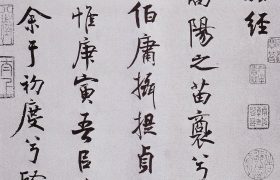 經
高陽之苗裔兮
伯庸攝提貞
惟庚寅吾
余于初度兮